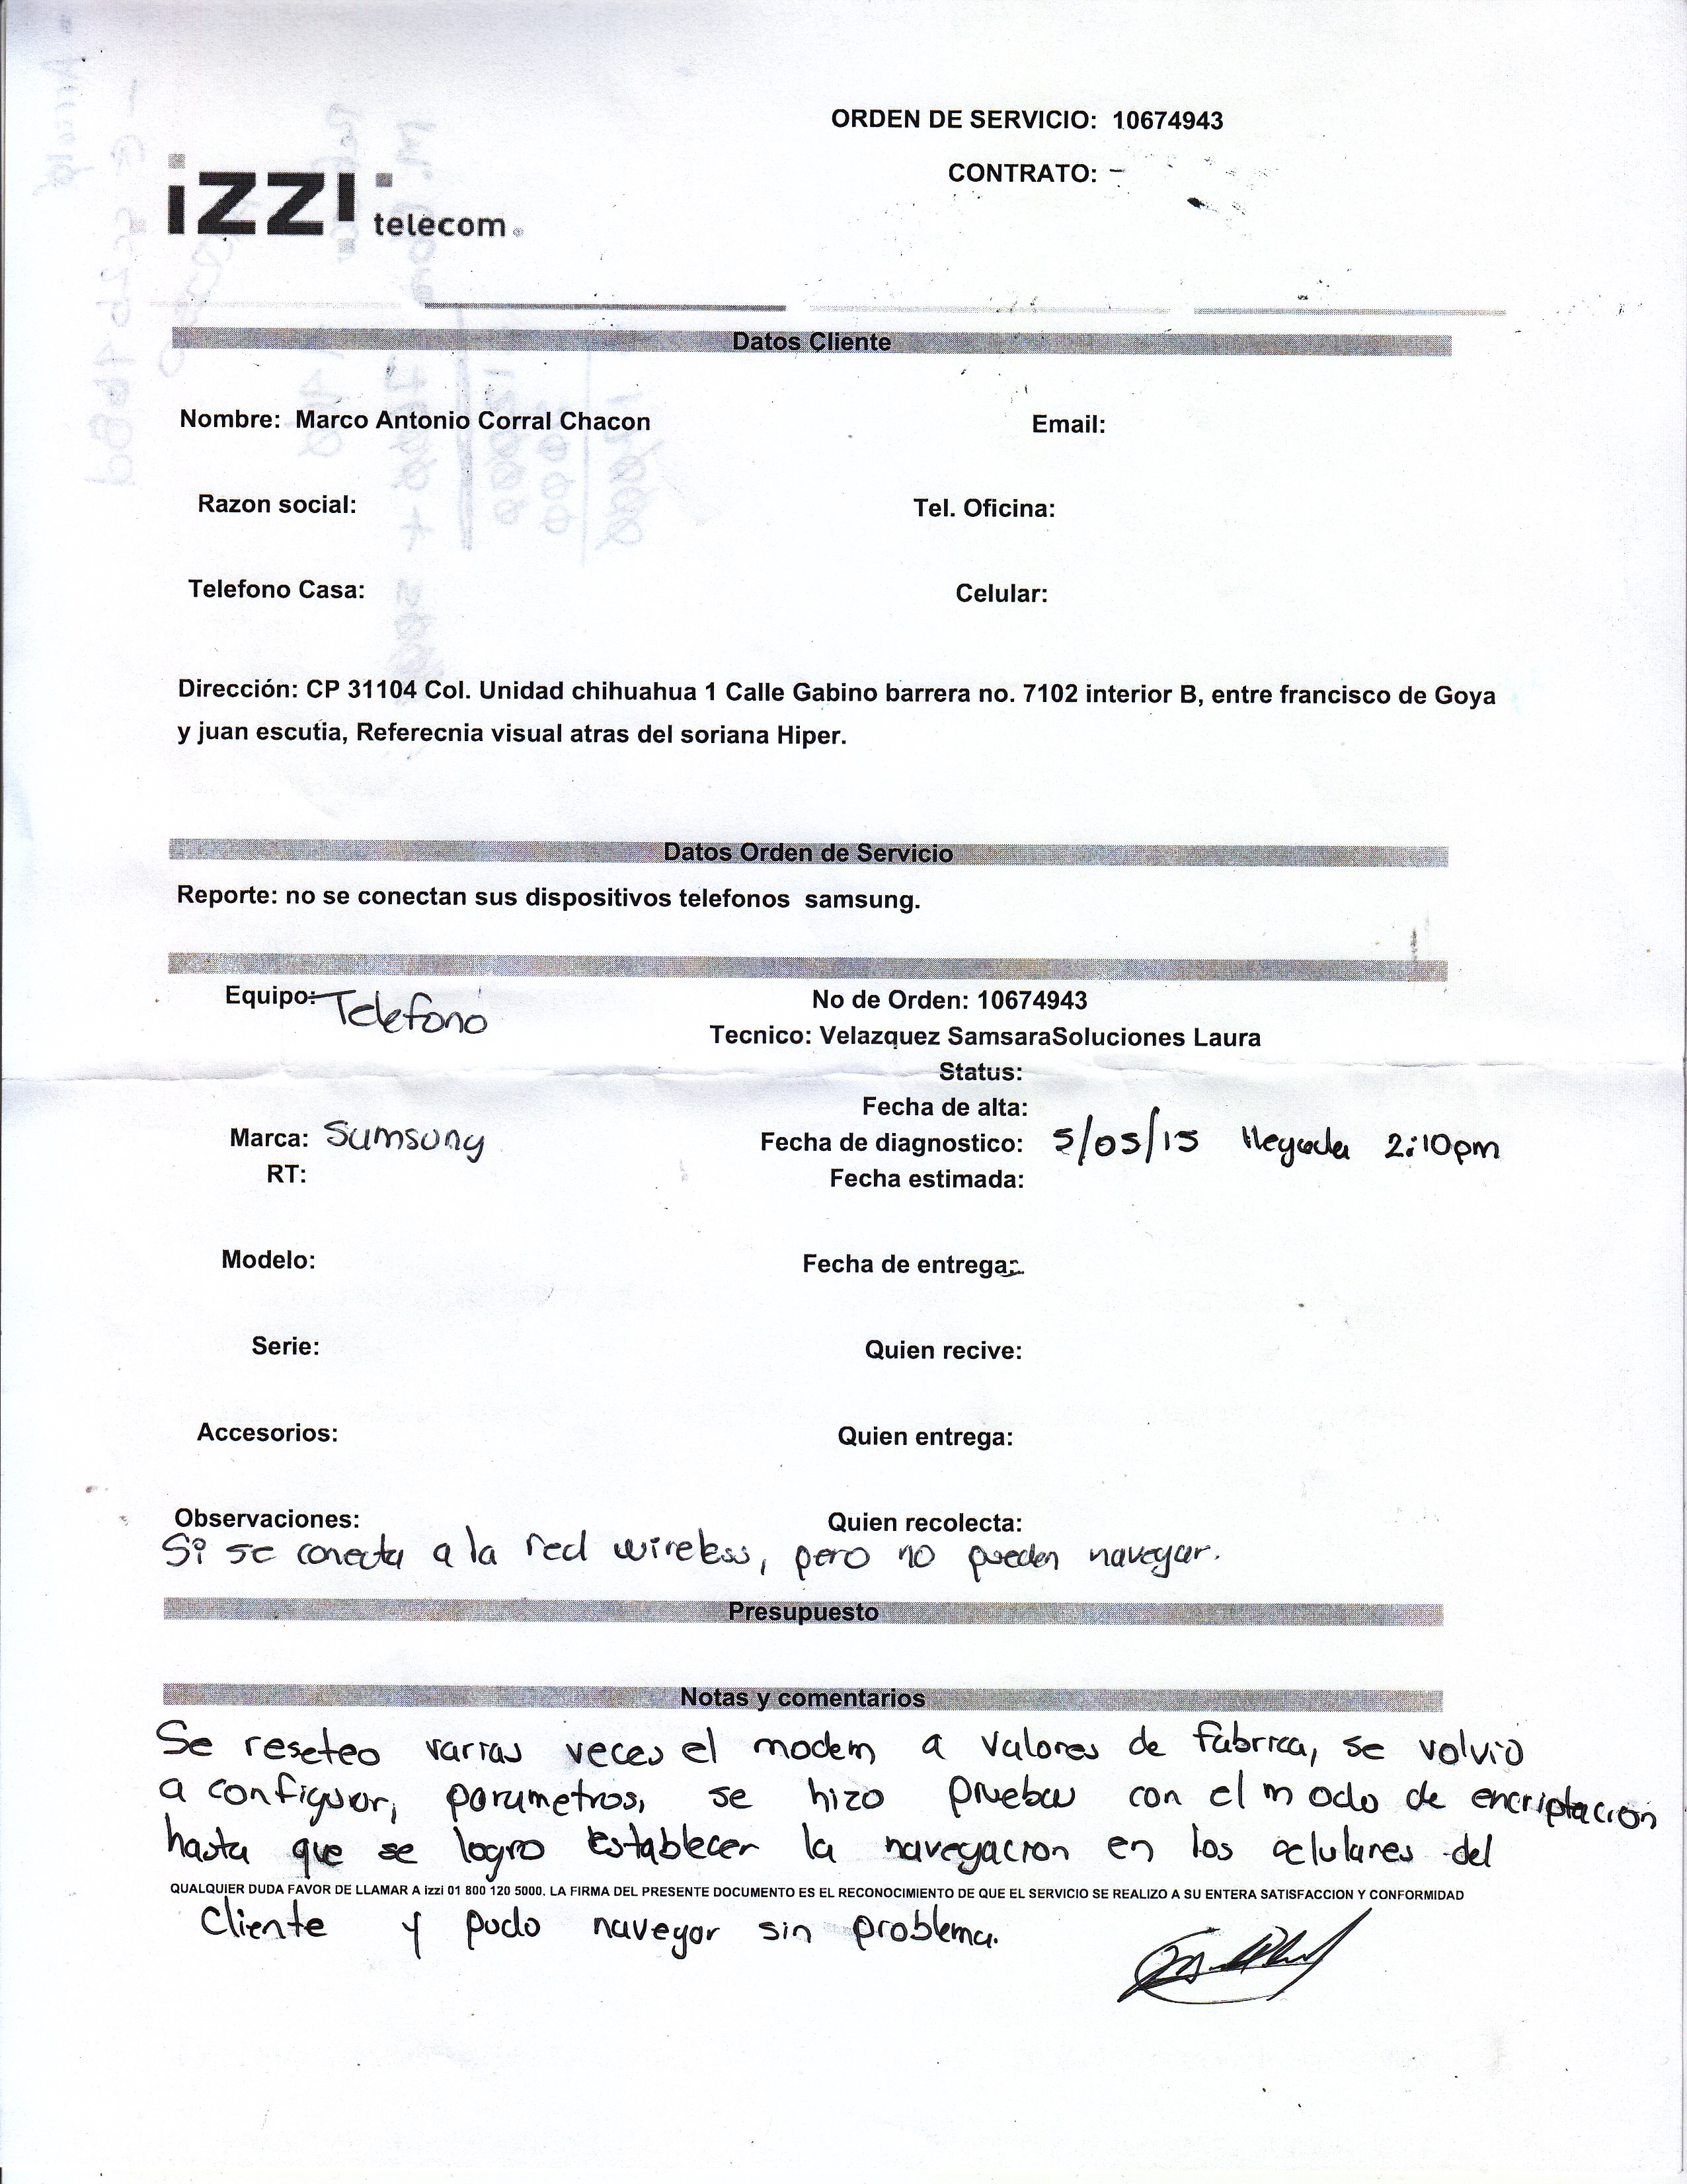 ORDEN DE SERVICIO: 10674943
CONTRATO: -
izzi telecom.
Datos Cliente
Nombre: Marco Antonio Corral Chacon Email:
Razon social: Tel. Oficina:
Telefono Casa: Celular:
Dirección: CP 31104 Col. Unidad chihuahua 1 Calle Gabino barrera no. 7102 interior B, entre francisco de Goya
y juan escutia, Referecnia visual atras del soriana Hiper.
Datos Orden de Servicio
Reporte: no se conectan sus dispositivos telefonos samsung.
Equipo: Telefono No de Orden: 10674943
Tecnico: Velazquez SamsaraSoluciones Laura
Status:
Fecha de alta:
Marca: Sumsung Fecha de diagnostico: 5/05/15 llegada 2:10pm
RT: Fecha estimada:
Modelo: Fecha de entrega:
Serie: Quien recive:
Accesorios: Quien entrega:
Observaciones: Quien recolecta:
Si se conecta a la red wireless, pero no pueden navegar.
Presupuesto
Notas y comentarios
Se reseteo varias veces el modem a valores de fabrica, se volvio
a configurar, parametros, se hizo pruebas con el modo de encriptacion
hasta que se logro establecer la navegacion en los celulares del
QUALQUIER DUDA FAVOR DE LLAMAR A izzi 01 800 120 5000. LA FIRMA DEL PRESENTE DOCUMENTO ES EL RECONOCIMIENTO DE QUE EL SERVICIO SE REALIZO A SU ENTERA SATISFACCION Y CONFORMIDAD
Cliente y pudo navegar sin problema.